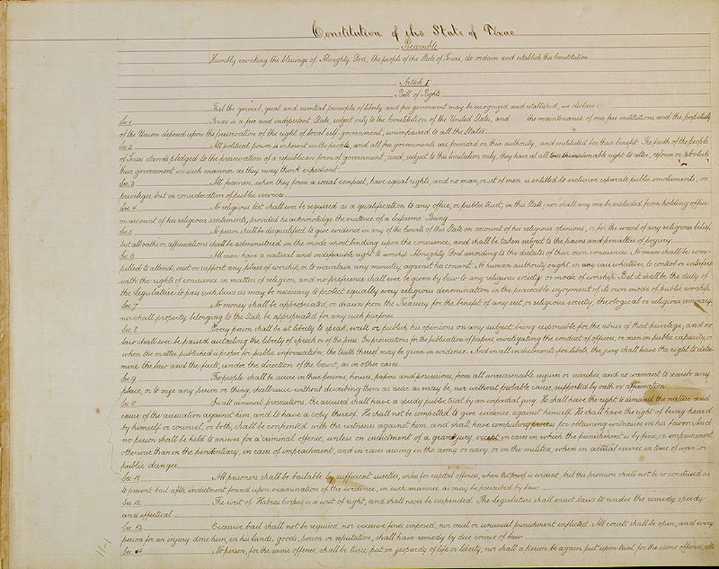 Constitution of the State of Texas
Preamble
Humbly invoking the blessings of Almighty God, the people of the State of Texas, do ordain and establish this Constitution
Article I
Bill of Rights
That the general, great and essential principles of liberty and free government may be recognized and established, we declare:
Sec. 1 Texas is a free and independent State, subject only to the Constitution of the United States, and the maintenance of our free institutions and the perpetuity
of the Union depend upon the preservation of the right of local self government, unimpaired to all the States.
Sec. 2 All political power is inherent in the people, and all free governments are founded on their authority, and instituted for their benefit. The faith of the people
of Texas stands pledged to the preservation of a republican form of government, and, subject to this limitation only, they have at all times the inalienable right to alter, reform or abolish
their government in such manner as they may think expedient.
Sec. 3 All freemen, when they form a social compact, have equal rights, and no man, or set of men, is entitled to exclusive separate public emoluments, or
privileges, but in consideration of public services.
Sec. 4 No religious test shall ever be required as a qualification to any office, or public trust, in this State; nor shall any one be excluded from holding office
on account of his religious sentiments, provided he acknowledge the existence of a Supreme Being.
Sec. 5 No person shall be disqualified to give evidence in any of the Courts of this State on account of his religious opinions, or for the want of any religious belief,
but all oaths or affirmations shall be administered in the mode most binding upon the conscience, and shall be taken subject to the pains and penalties of perjury.
Sec. 6 All men have a natural and indefeasible right to worship Almighty God according to the dictates of their own consciences. No man shall be com-
pelled to attend, erect or support any place of worship, or to maintain any ministry against his consent. No human authority ought, in any case whatever, to control or interfere
with the rights of conscience in matters of religion, and no preference shall ever be given by law to any religious society or mode of worship. But it shall be the duty of
the Legislature to pass such laws as may be necessary to protect equally every religious denomination in the peaceable enjoyment of its own mode of public worship.
Sec. 7 No money shall be appropriated, or drawn from the Treasury for the benefit of any sect, or religious society, theological or religious seminary;
nor shall property belonging to the State be appropriated for any such purpose.
Sec. 8 Every person shall be at liberty to speak, write or publish his opinions on any subject, being responsible for the abuse of that privilege; and no
law shall ever be passed curtailing the liberty of speech or of the press. In prosecutions for the publication of papers, investigating the conduct of officers, or men in public capacity, or
when the matter published is proper for public information, the truth thereof may be given in evidence. And in all indictments for libels, the jury shall have the right to deter-
mine the law and the facts, under the direction of the court, as in other cases.
Sec. 9 The people shall be secure in their persons, houses, papers and possessions, from all unreasonable seizures or searches, and no warrant to search any
place, or to seize any person or thing, shall issue without describing them as near as may be, nor without probable cause, supported by oath or affirmation.
Sec. 10 In all criminal prosecutions, the accused shall have a speedy public trial by an impartial jury. He shall have the right to demand the nature and
cause of the accusation against him, and to have a copy thereof. He shall not be compelled to give evidence against himself. He shall have the right of being heard
by himself or counsel, or both, shall be confronted with the witnesses against him, and shall have compulsory process for obtaining witnesses in his favor. And
no person shall be held to answer for a criminal offense, unless on indictment of a grand jury, except in cases in which the punishment is by fine, or imprisonment
otherwise than in the penitentiary, in cases of impeachment, and in cases arising in the army or navy, or in the militia, when in actual service in time of war or
public danger.
Sec. 11 All prisoners shall be bailable by sufficient sureties, unless for capital offenses, when the proof is evident, but this provision shall not be so construed as
to prevent bail after indictment found upon examination of the evidence, in such manner as may be prescribed by law.
Sec. 12 The writ of Habeas Corpus is a writ of right, and shall never be suspended. The Legislature shall enact laws to render the remedy speedy
and effectual.
Sec. 13 Excessive bail shall not be required, nor excessive fines imposed, nor cruel or unusual punishment inflicted. All courts shall be open, and every
person for an injury done him, in his lands, goods, person or reputation, shall have remedy by due course of law.
Sec. 14 No person, for the same offense, shall be twice put in jeopardy of life or liberty, nor shall a person be again put upon trial for the same offense, after